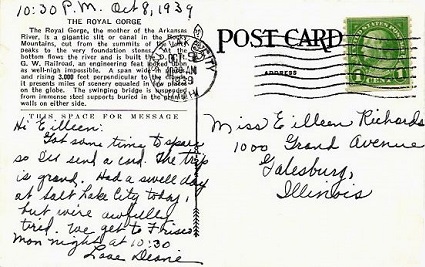 10:30 P.M. Oct 8, 1939
THE ROYAL GORGE
The Royal Gorge, the mother of the Arkansas
River, is a gigantic slit or canal in the Rocky
Mountains, cut from the summits of the
peaks to very foundation stones. At the
bottom flows the river and is built the D. & R.
G. W. Railroad, an engineering feat looked upon
as well-nigh impossible. A span
and rising 3,000 feet perpendicular to the clouds
it presents miles of scenery equaled in few places
on the globe. The swinging bridge is suspended
from immense steel supports buried in the granite
walls on either side.
THIS SPACE FOR MESSAGE
Hi Eileen:
Got some time to spare
so I'll send a card. The trip
is grand. Had a swell day
at Salt Lake City today,
but we're awfully
tired. We get to Frisco
Mon night at 10:30
Love Diane
POST CARD
ADDRESS
OCT 9
AM
1939
UNITED STATES POSTAGE
1 CENT 1
Miss Eilleen Richards
1000 Grand Avenue
Galesburg,
Illinois